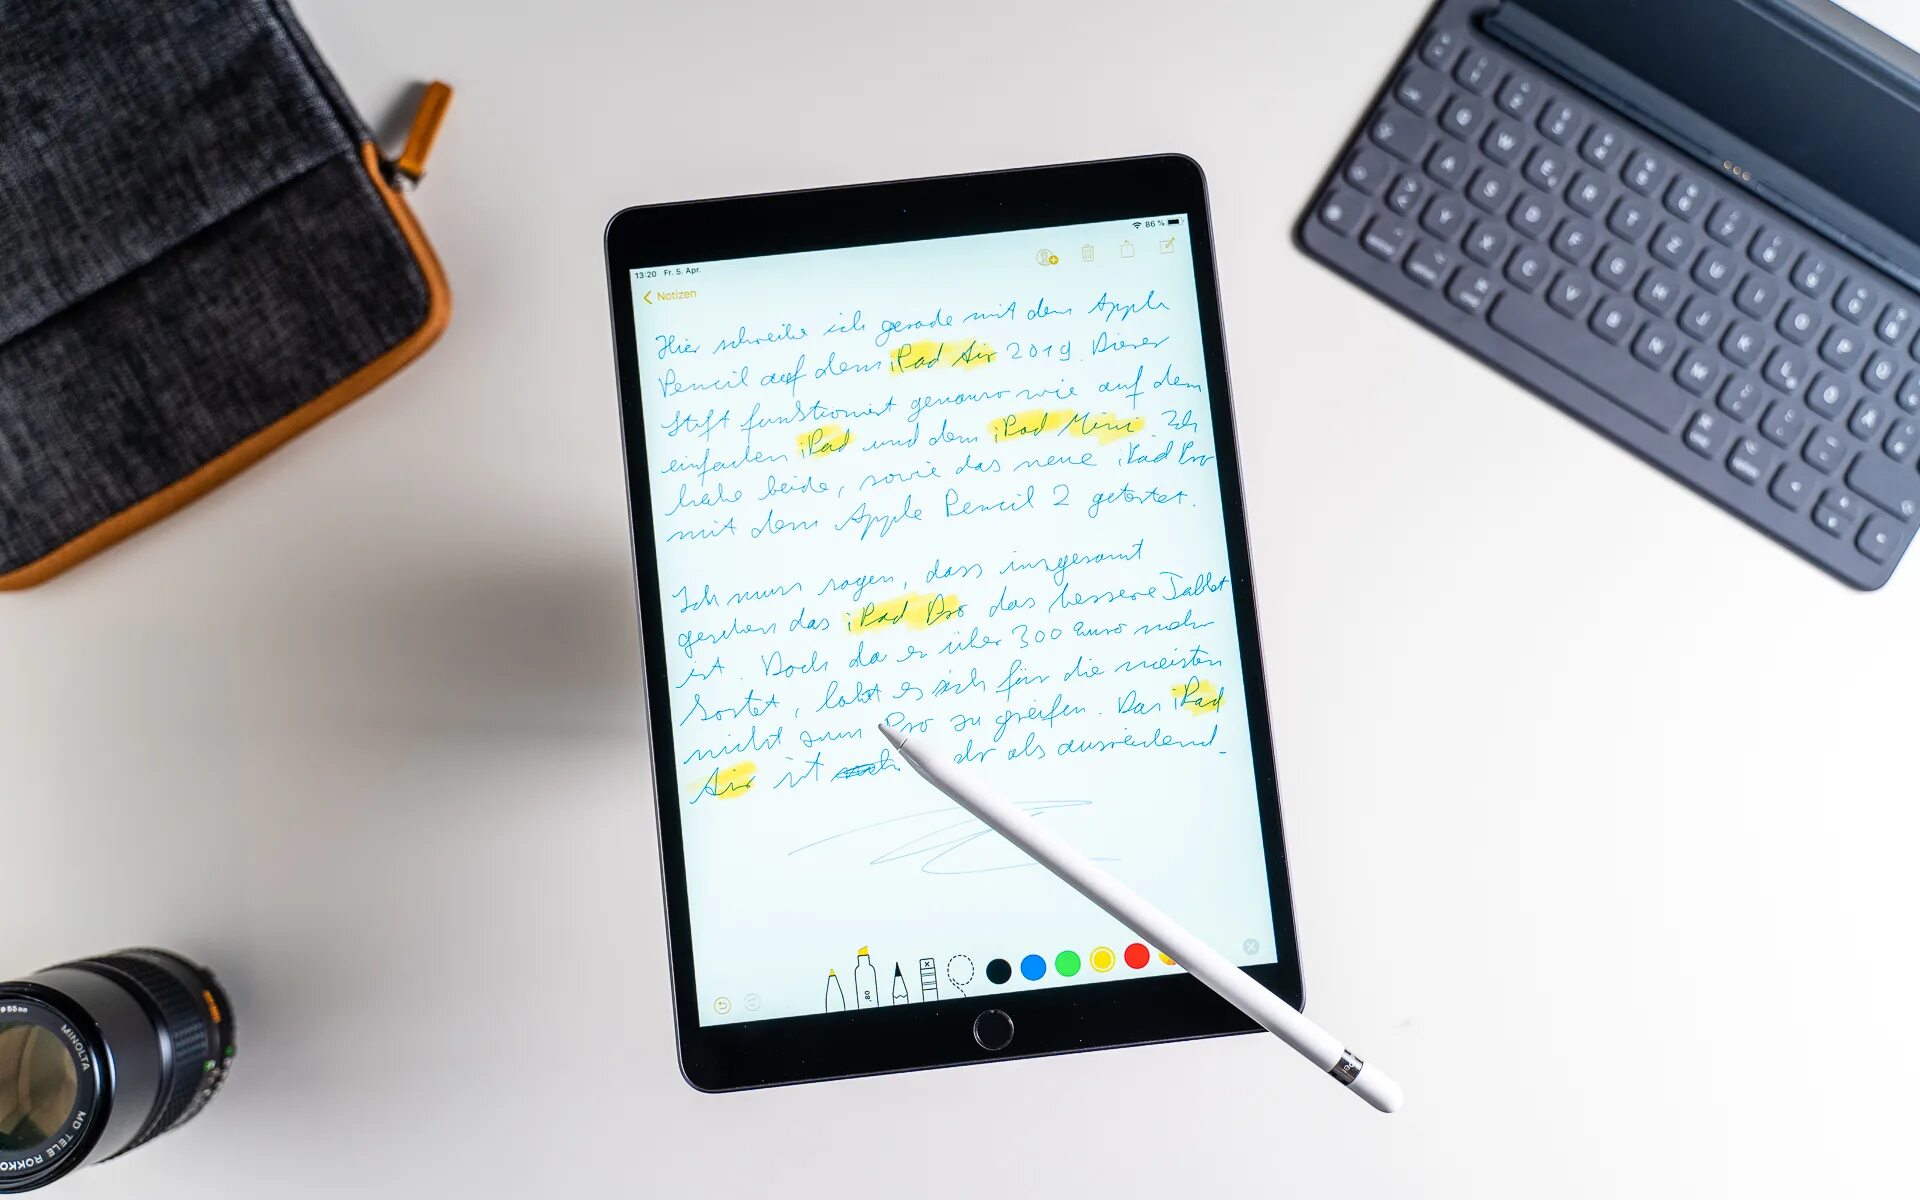 13:20 Fr. 5. Apr.
86 %
Notizen
Hier schreibe ich gerade mit dem Apple
Pencil auf dem iPad Air 2019. Dieser
Stift funktioniert genauso wie auf dem
einfachen iPad und dem iPad Mini. Ich
habe beide, sowie das neue iPad Pro
mit dem Apple Pencil 2 getestet.
Ich muss sagen, dass insgesamt
gesehen das iPad Pro das bessere Tablet
ist. Doch da er über 300 Euro mehr
kostet, lohnt es sich für die meisten
nicht zum Pro zu greifen. Das iPad
Air ist als ausreichend.
80
MINOLTA
MD TELE ROKKO
ø55mm
Q W E R T Z U I O P Ü
A S D F G H J K L Ö Ä
Y X C V B N M